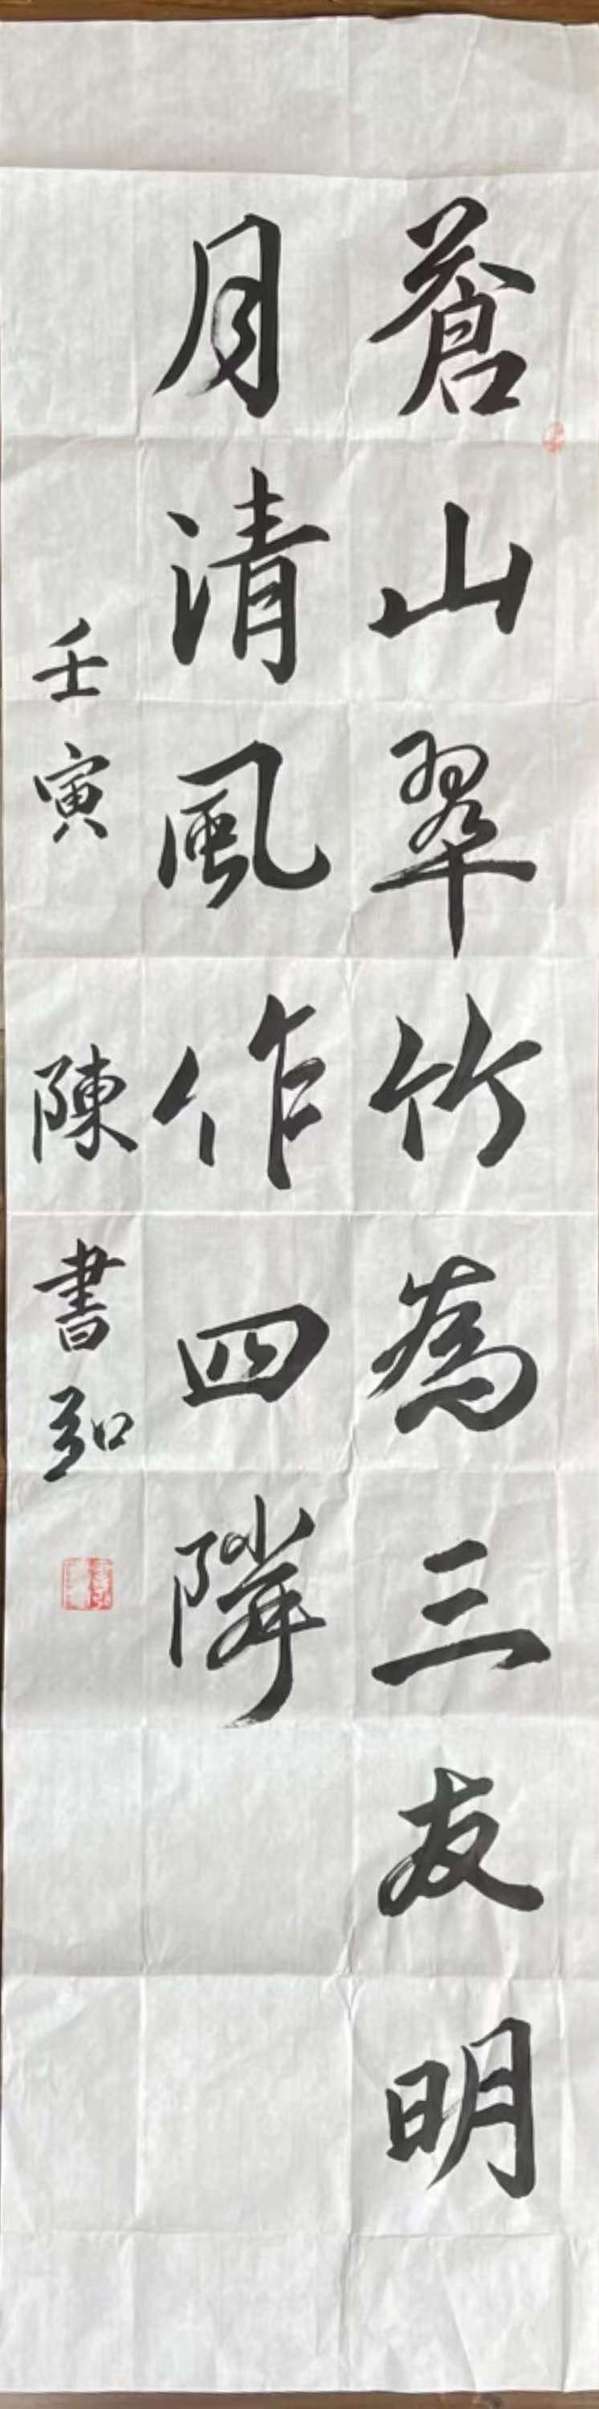 蒼山翠竹為三友明
月清風作四隣
壬寅 陳書弘